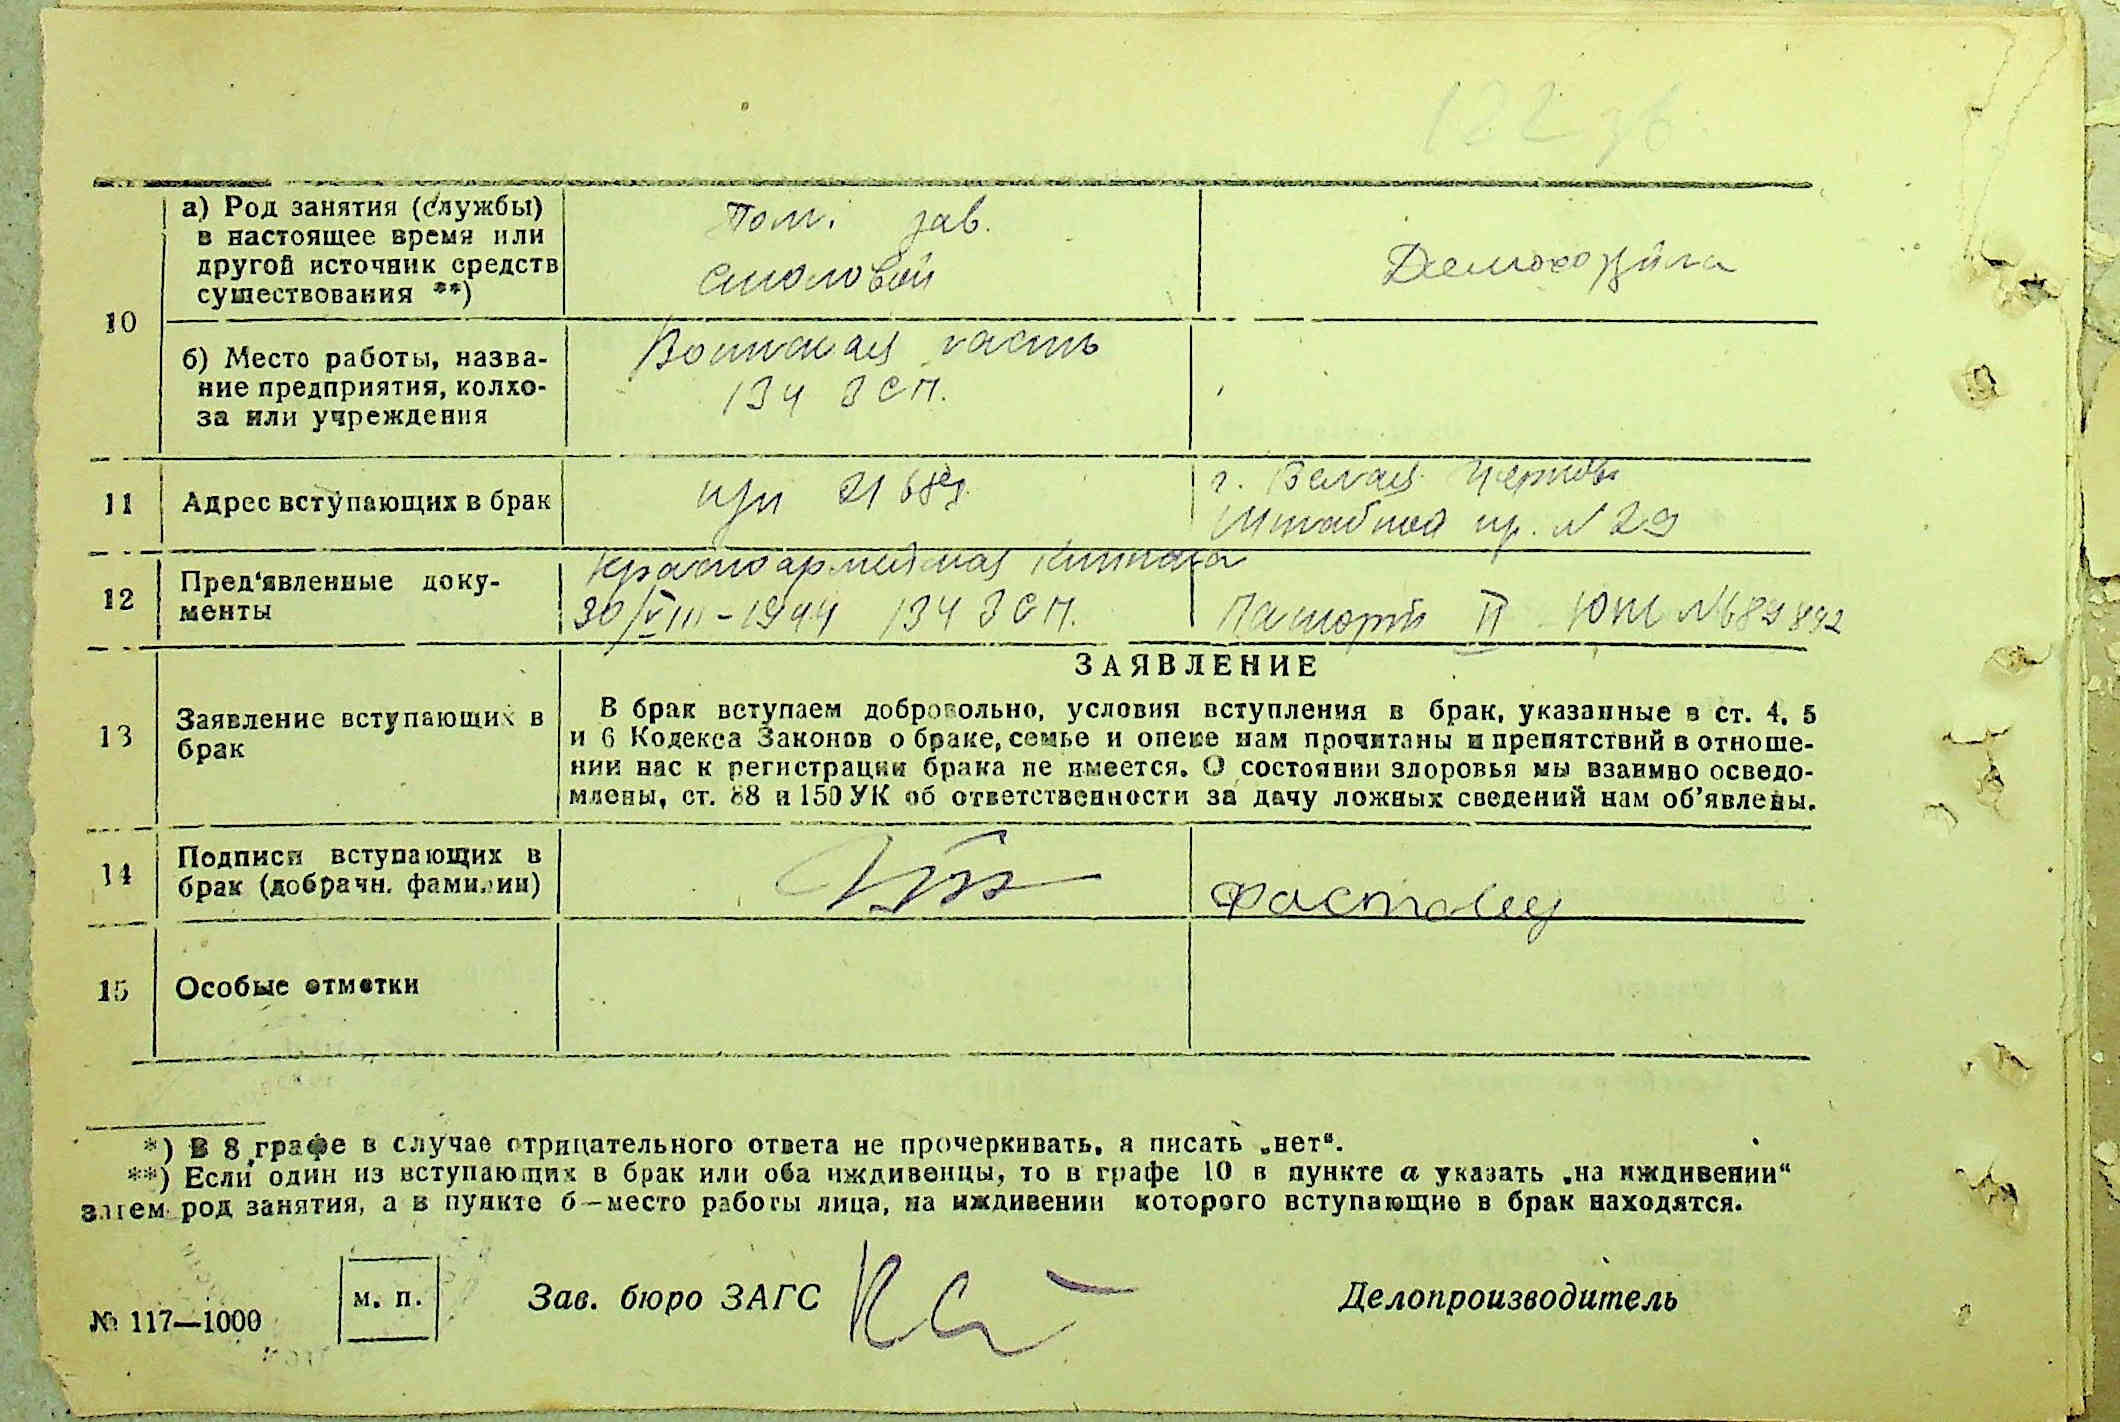 122 зв.
10
а) Род занятия (службы)
в настоящее время или
другой источник средств
существования **)
Пом. зав.
столовой
Домохозяйка
б) Место работы, назва-
ние предприятия, колхо-
за или учреждения
Воинская часть
134 ЗСП.
11
Адрес вступающих в брак
г. Белая Церковь
Штабной пр. № 29
12
Пред'явленные доку-
менты
Красноармейская книжка
30/VIII-1944 134 ЗСП.
Паспорт II ЮК № 689892
13
Заявление вступающих в
брак
ЗАЯВЛЕНИЕ
В брак вступаем добровольно, условия вступления в брак, указанные в ст. 4, 5
и 6 Кодекса Законов о браке, семье и опеке нам прочитаны и препятствий в отноше-
нии нас к регистрации брака не имеется. О состоянии здоровья мы взаимно осведо-
млены, ст. 88 и 150 УК об ответственности за дачу ложных сведений нам об'явлены.
14
Подписи вступающих в
брак (добрачн. фамилии)
15
Особые отметки
*) В 8 графе в случае отрицательного ответа не прочеркивать, а писать „нет“.
**) Если один из вступающих в брак или оба иждивенцы, то в графе 10 в пункте а указать „на иждивении“
затем род занятия, а в пункте б—место работы лица, на иждивении которого вступающие в брак находятся.
№ 117—1000
м. п.
Зав. бюро ЗАГС
Делопроизводитель